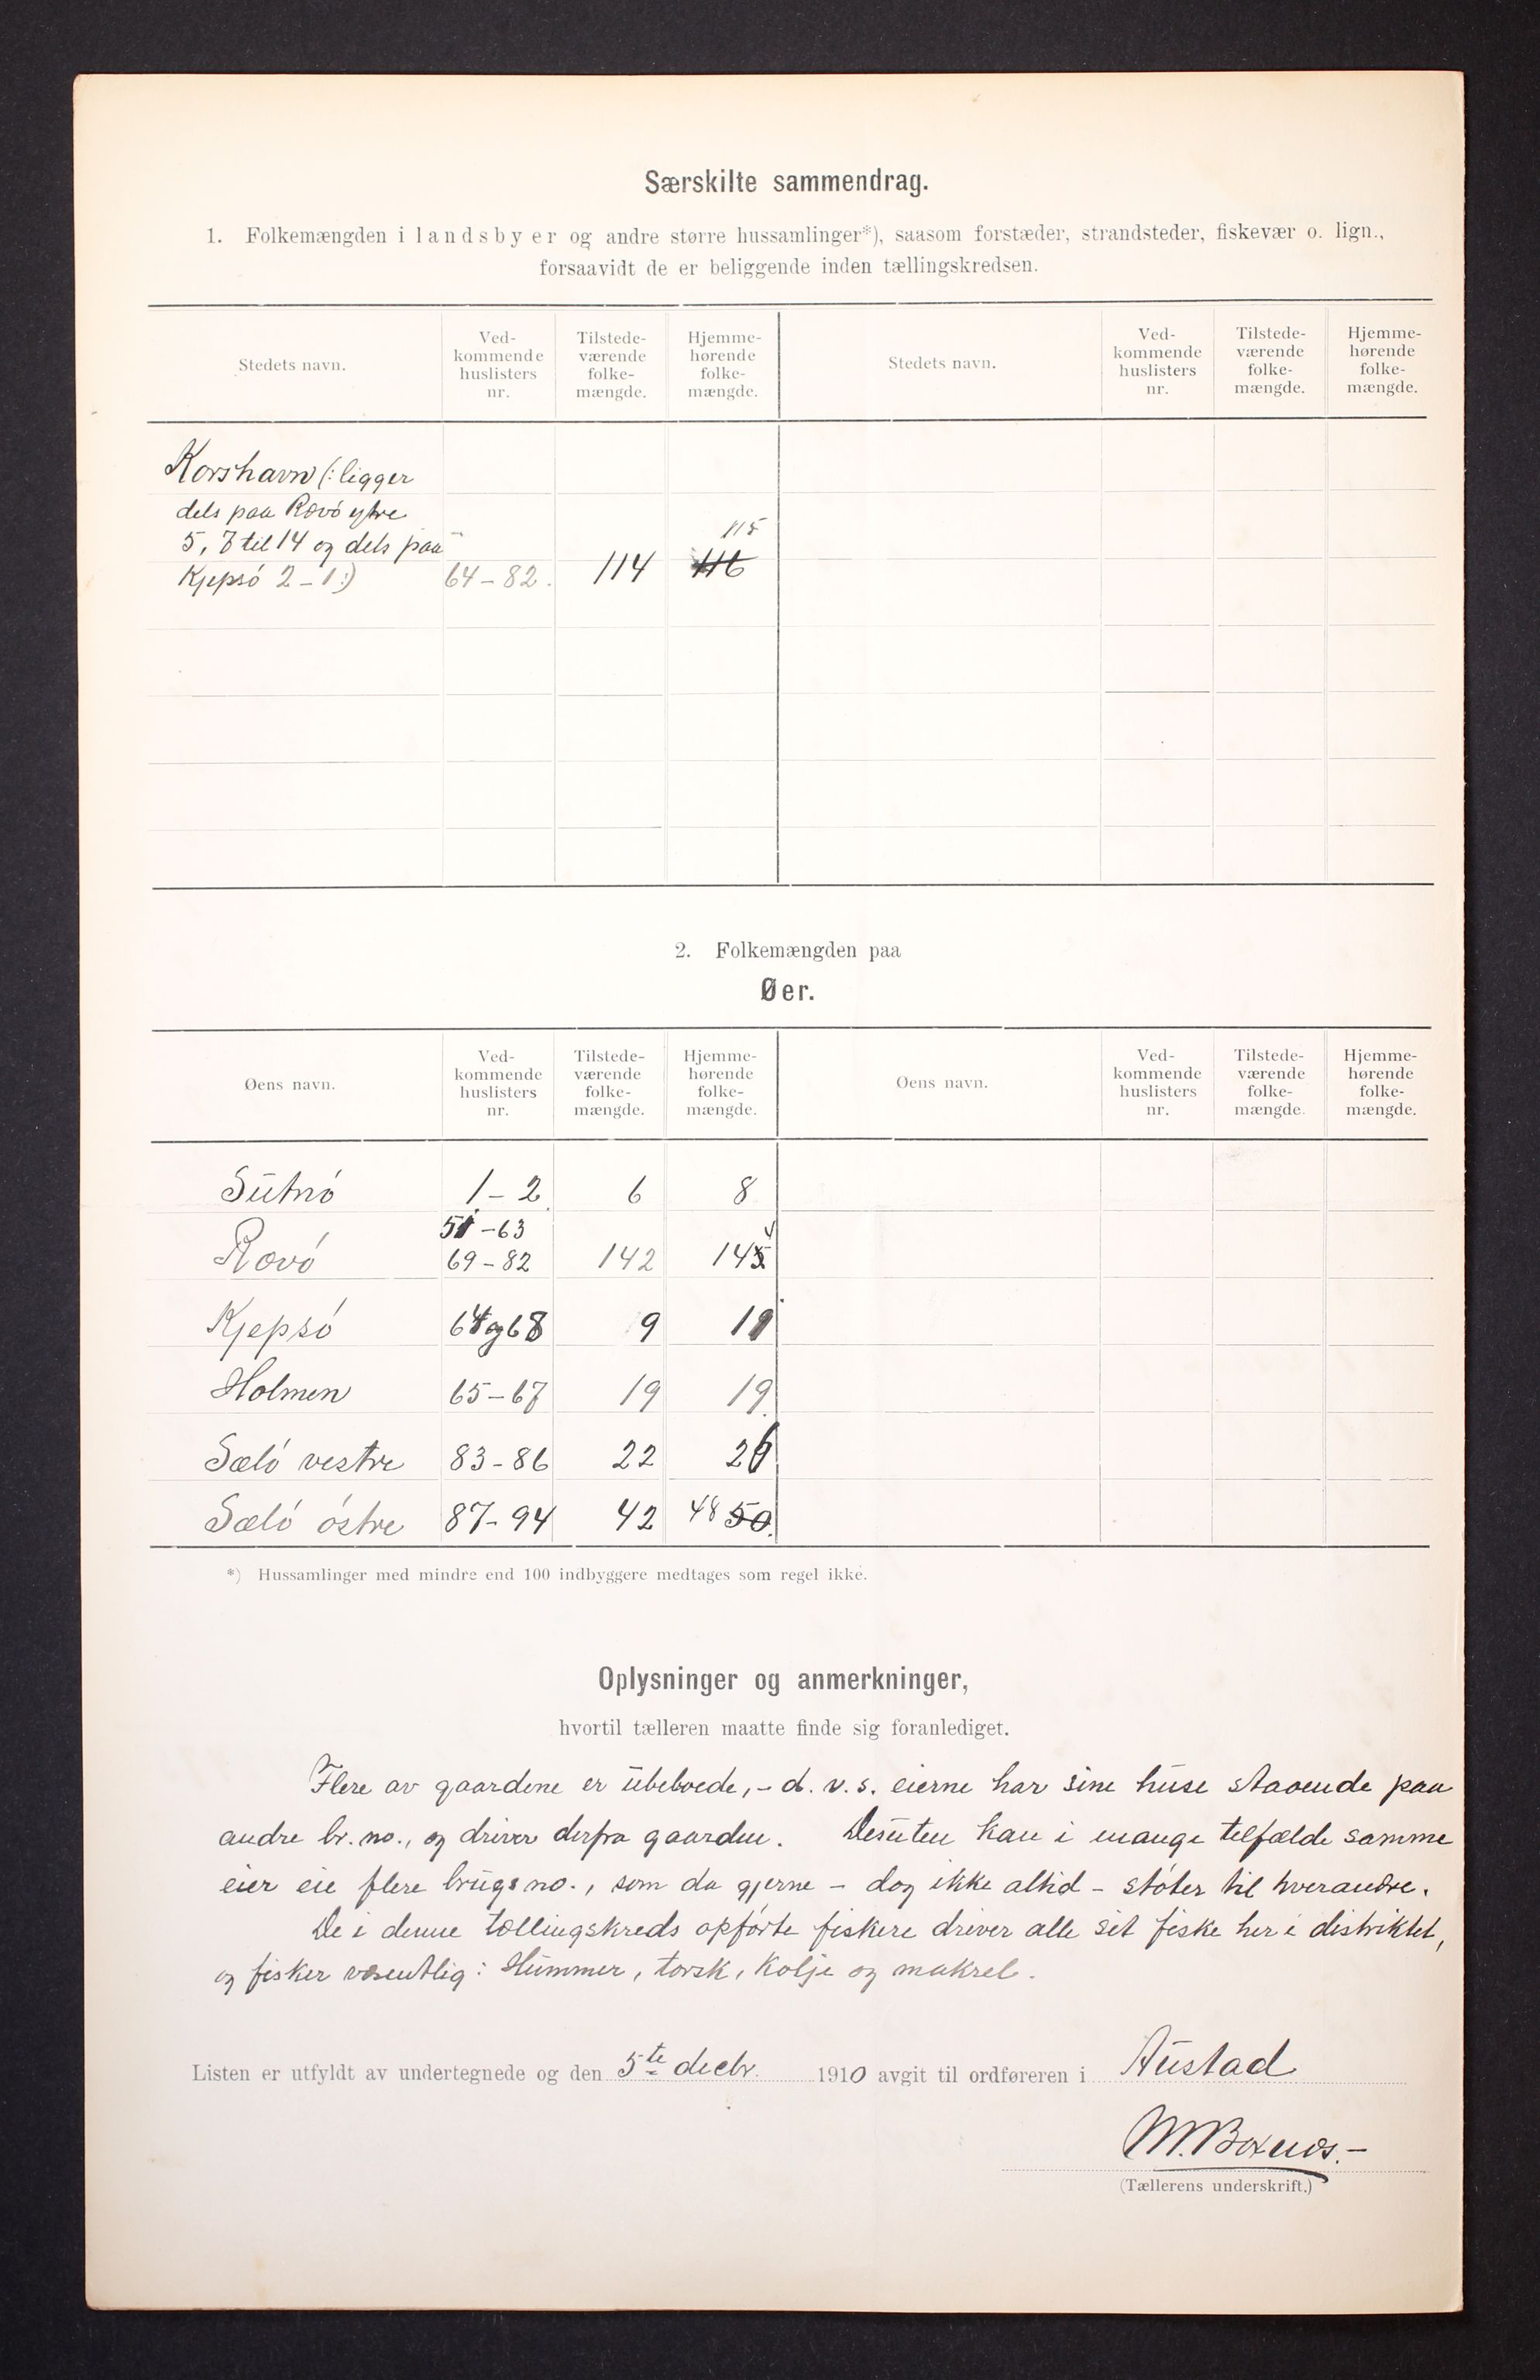 Særskilte sammendrag.
1. Folkemængden i landsbyer og andre større hussamlinger*), saasom forstæder, strandsteder, fiskevær o. lign.,
forsaavidt de er beliggende inden tællingskredsen.
Stedets navn. Ved-kommende huslisters nr. Tilstede-værende folke-mængde. Hjemme-hørende folke-mængde. Stedets navn. Ved-kommende huslisters nr. Tilstede-værende folke-mængde. Hjemme-hørende folke-mængde.
Korshavn (: ligger
dels paa Rævó ytre
5, 7 til 14 og dels paa 115
Kjepsó 2-1:) 64-82. 114 116
2. Folkemængden paa
Øer.
Øens navn. Ved-kommende huslisters nr. Tilstede-værende folke-mængde. Hjemme-hørende folke-mængde. Øens navn. Ved-kommende huslisters nr. Tilstede-værende folke-mængde. Hjemme-hørende folke-mængde.
Sütnó 1-2. 6 8
-63
Rævó 69-82 142
Kjepsó 64 og 68 9
Holmen 65-67 19 19.
Sæló vestre 83-86 22 26
Sæló óstre 87-94 42 48 50.
*) Hussamlinger med mindre end 100 indbyggere medtages som regel ikke.
Oplysninger og anmerkninger,
hvortil tælleren maatte finde sig foranlediget.
Flere av gaardene er übeboede, - d. v. s. eierne har sine hüse staaende paa
andre br. no., og driver derfra gaarden. Desüten kan i mange tilfælde samme
eier eie flere brügsno., som da gjerne - dog ikke altid - stóter til hverandre.
De i denne tællingskreds opfórte fiskere driver alle sit fiske her i distriktet,
og fisker væsentlig: Hümmer, torsk, kolje og makrel.
Listen er utfyldt av undertegnede og den 5te decbr. 1910 avgit til ordføreren i Aüstad
(Tællerens underskrift.)